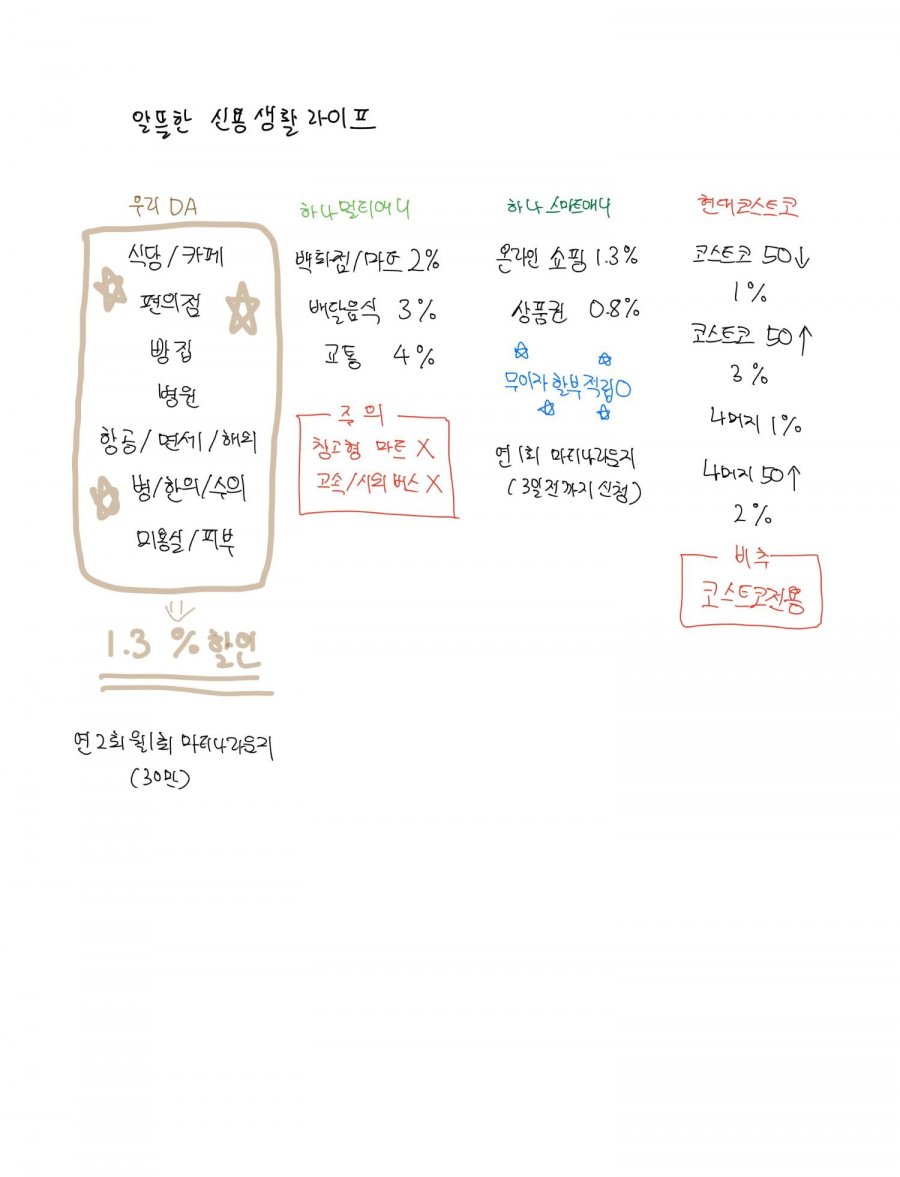 알뜰한 신용생활 라이프
우리 DA
식당/카페
편의점
빵집
병원
항공/면세/해외
병/한의/수의
미용실/피부
1.3 % 할인
연2회 월1회 마티나라운지
(30만)
하나 멀티애니
백화점/마트 2%
배달음식 3%
교통 4%
주의
창고형 마트 X
고속/시외버스 X
하나 스마트애니
온라인 쇼핑 1.3%
상품권 0.8%
무이자할부적립O
연1회 마티나라운지
(3일전까지 신청)
현대코스트코
코스트코 50↓
1%
코스트코 50↑
3%
나머지 1%
나머지 50↑
2%
비추
코스트코전용